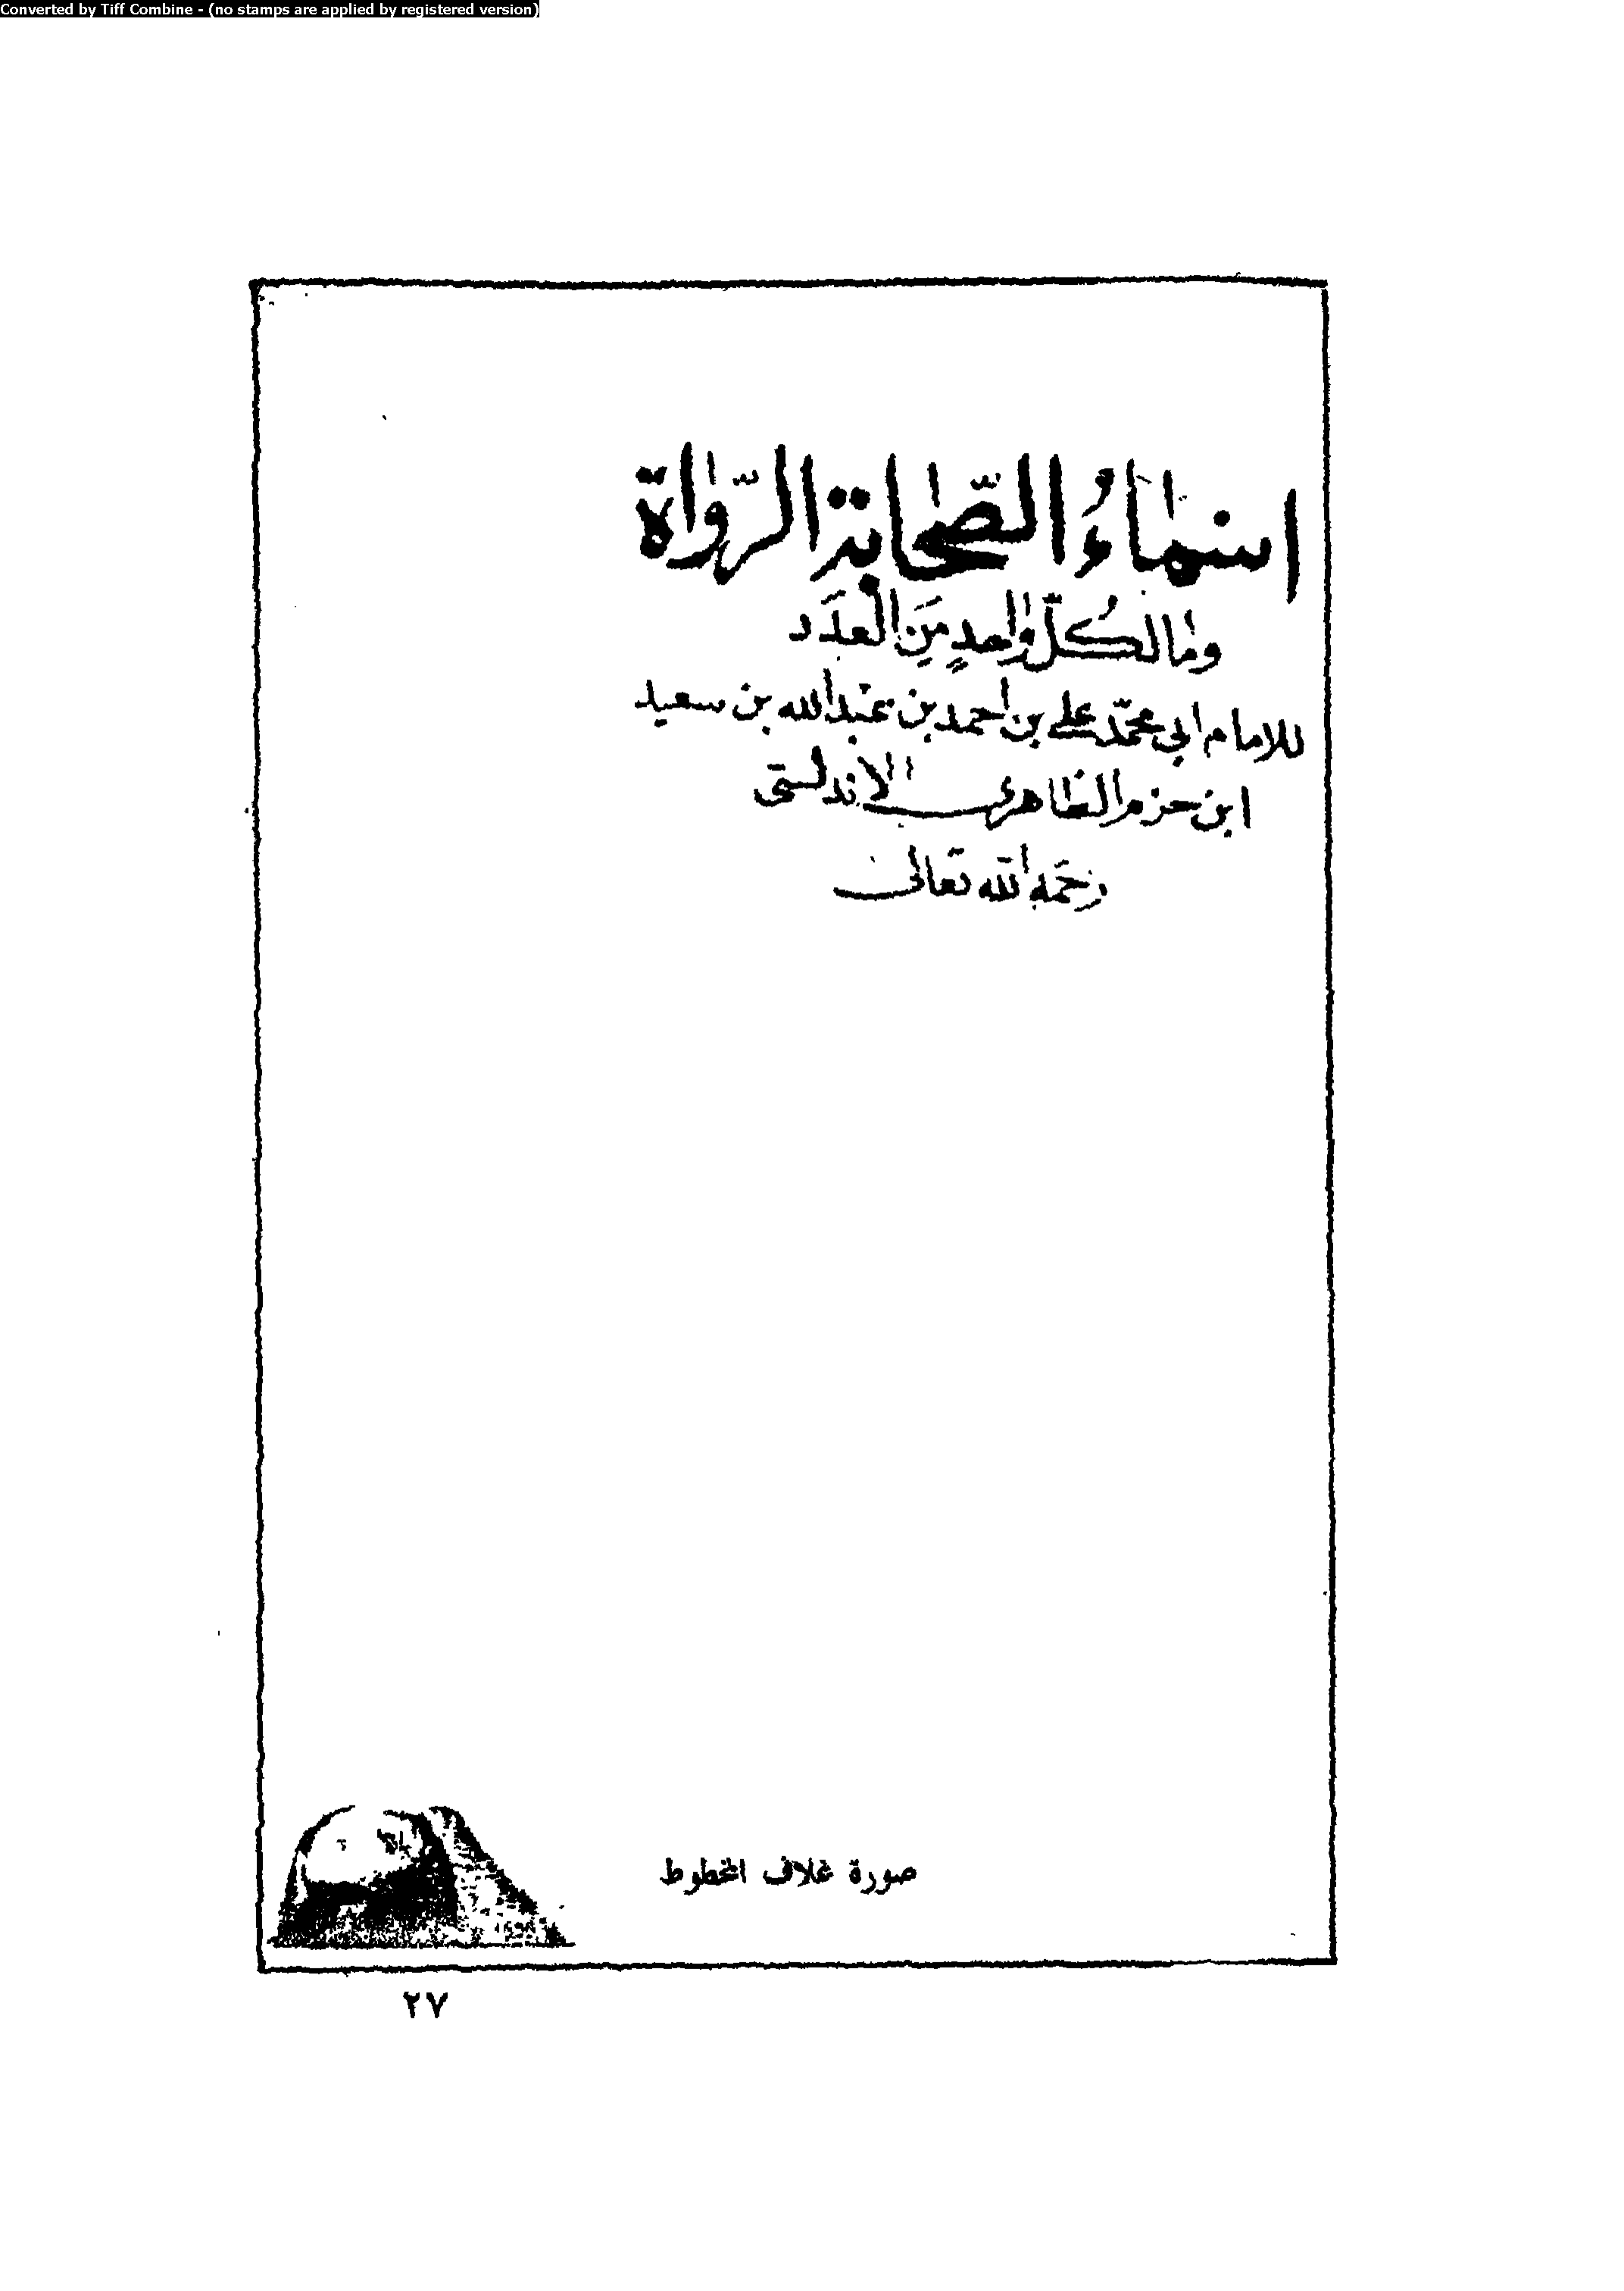 Converted by Tiff Combine - (no stamps are applied by registered version)
اسْمَاءُ الصَّحَابَة الرّوَاة
وَمَا لكُلّ وَاحدٍ مِنَ العَدَد
للامام ابي محمّد علي بن احمد بن عبدالله بن سعيد
ابن حزم الظاهري الاندلسي
رحمَه الله تعالى
صورة غلاف المخطوط
٢٧